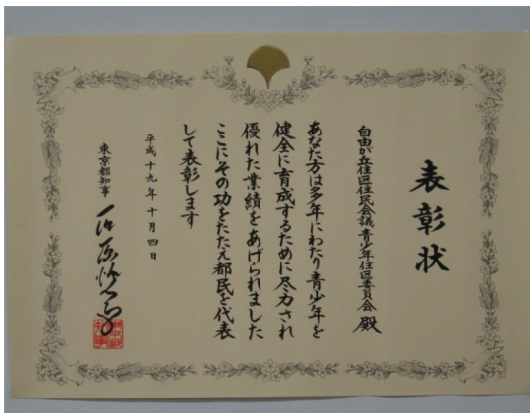 表彰状
自由が丘住区住民会議青少年住区委員会 殿
あなた方は多年にわたり青少年を
健全に育成するために尽力され
優れた業績をあげられました
ここにその功をたたえ都民を代表
して表彰します
平成十九年十月四日
東京都知事 石原慎太郎